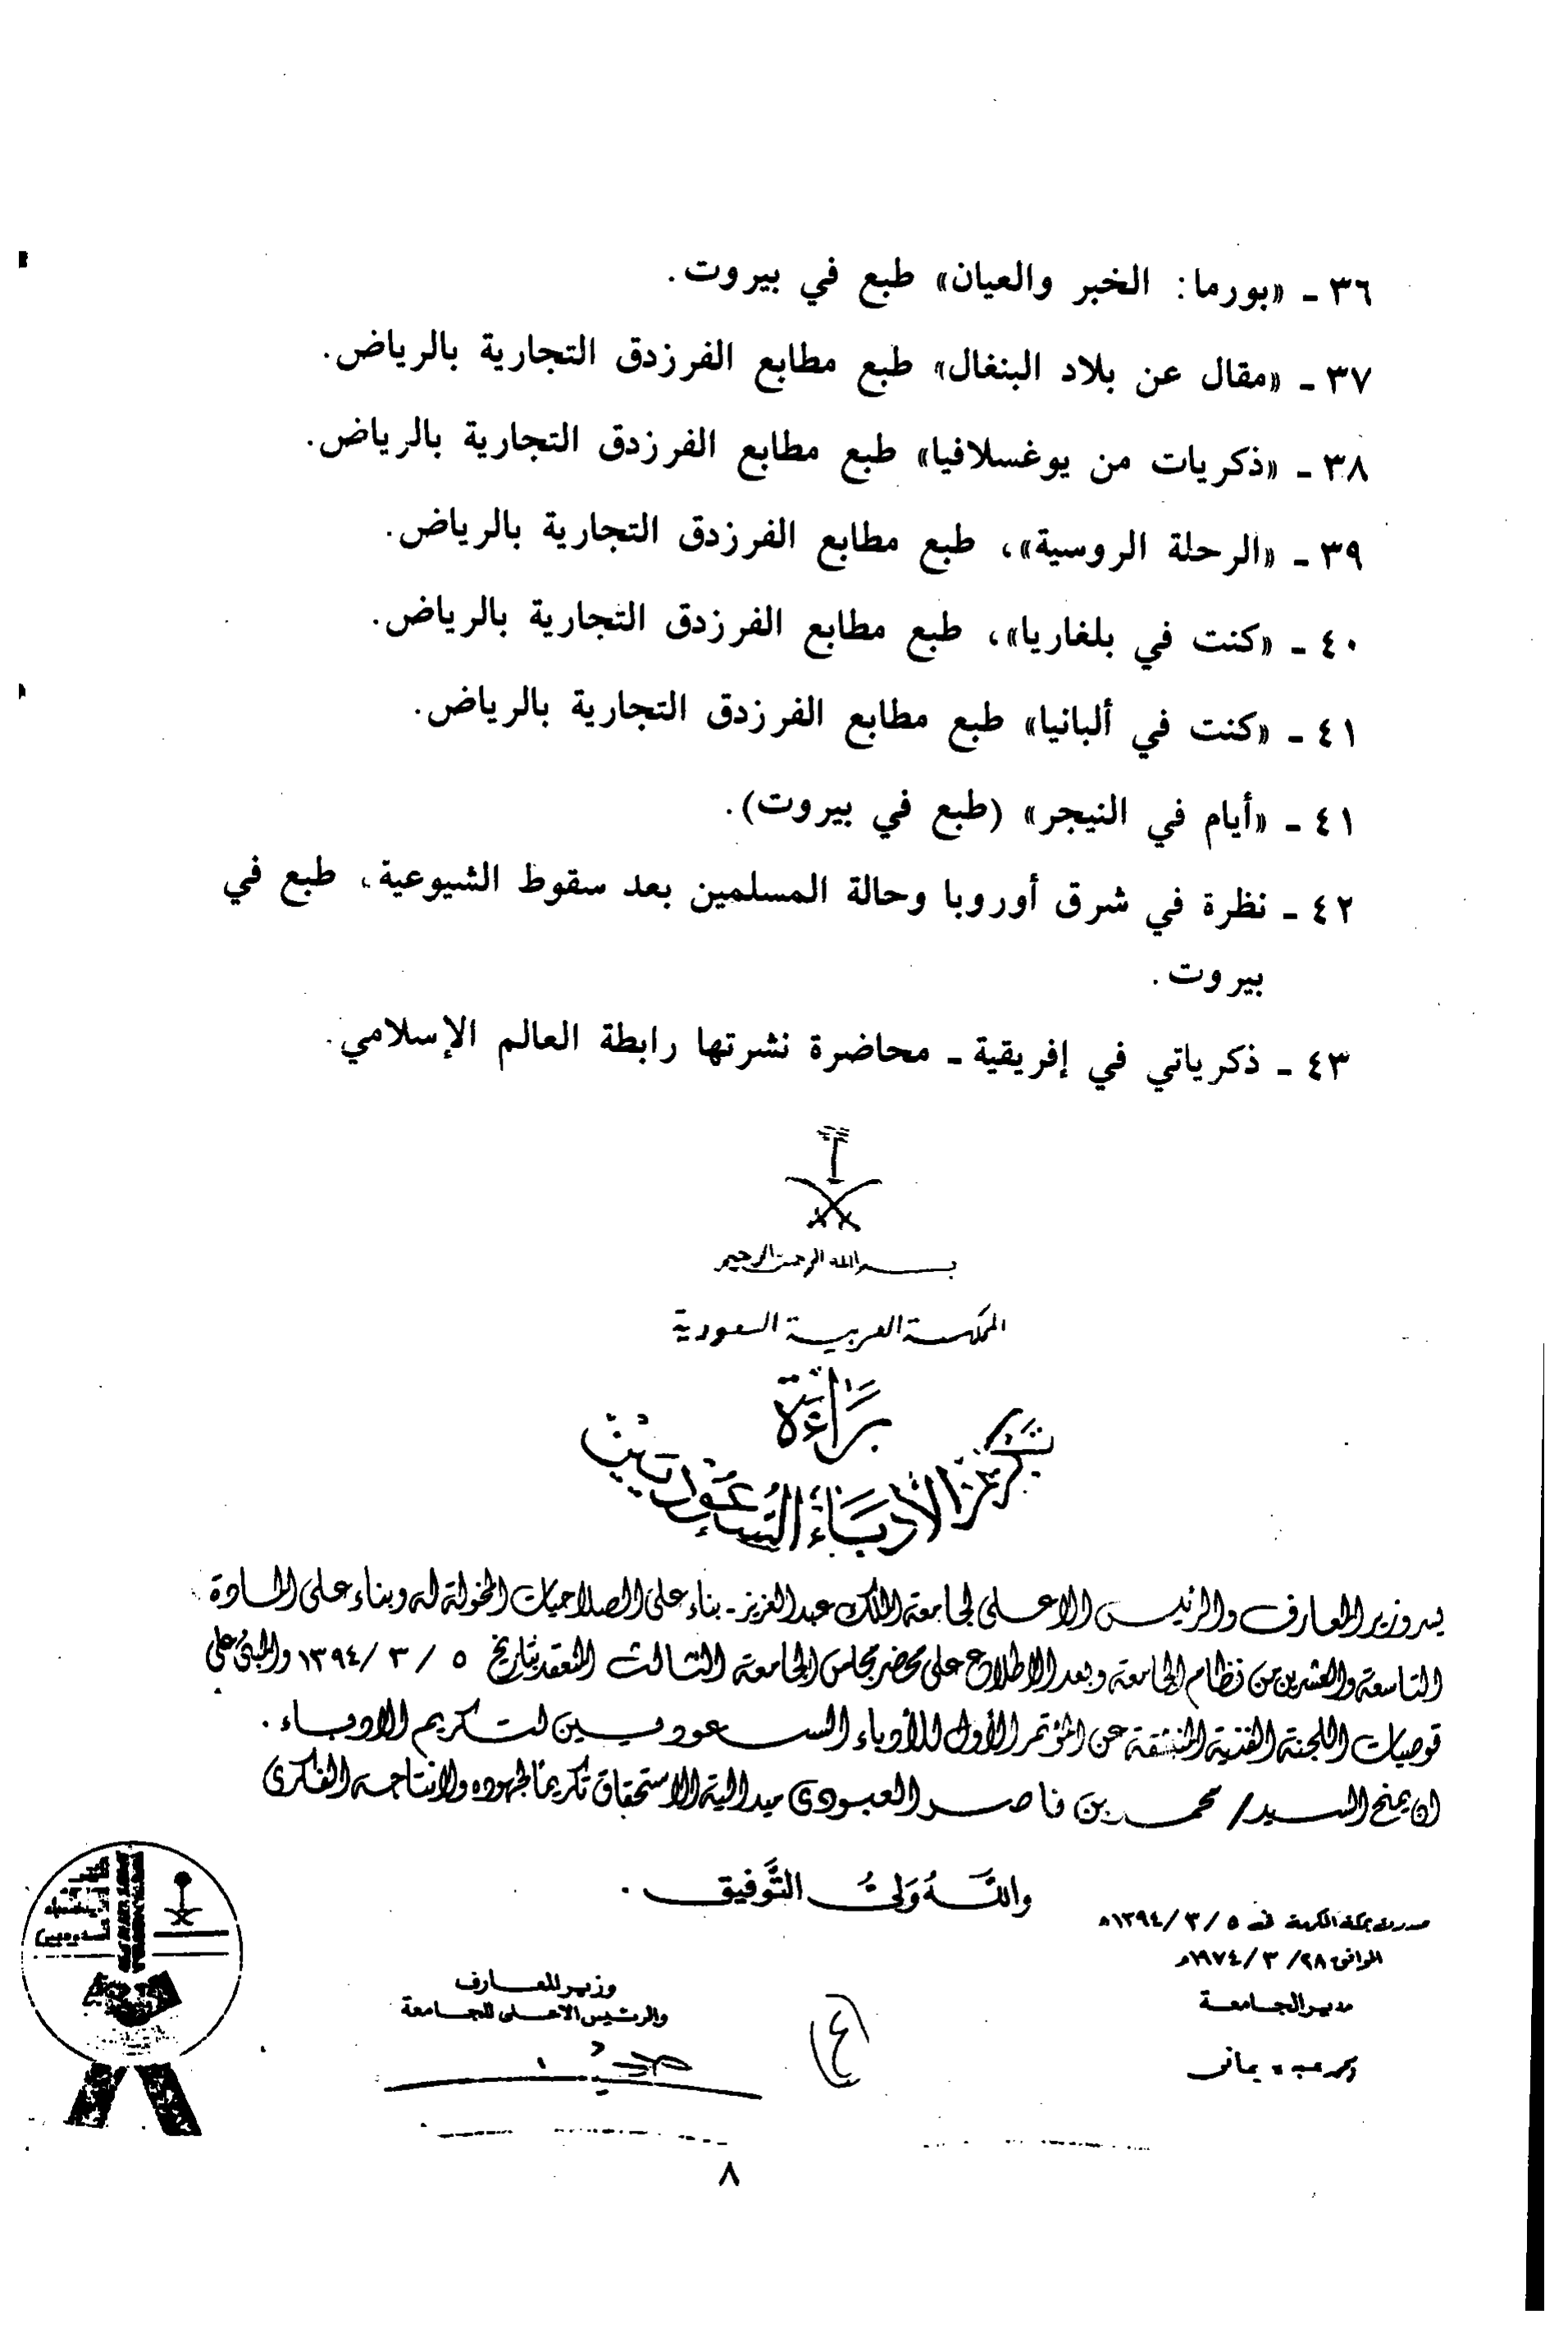 ٣٦ ـ «بورما: الخبر والعيان» طبع في بيروت.
٣٧ ـ «مقال عن بلاد البنغال» طبع مطابع الفرزدق التجارية بالرياض.
٣٨ ـ «ذكريات من يوغسلافيا» طبع مطابع الفرزدق التجارية بالرياض.
٣٩ ـ «الرحلة الروسية»، طبع مطابع الفرزدق التجارية بالرياض.
٤٠ ـ «كنت في بلغاريا»، طبع مطابع الفرزدق التجارية بالرياض.
٤١ ـ «كنت في ألبانيا» طبع مطابع الفرزدق التجارية بالرياض.
٤١ ـ «أيام في النيجر» (طبع في بيروت).
٤٢ ـ نظرة في شرق أوروبا وحالة المسلمين بعد سقوط الشيوعية، طبع في
بيروت.
٤٣ ـ ذكرياتي في إفريقية ـ محاضرة نشرتها رابطة العالم الإسلامي.
بسم الله الرحمن الرحيم
المملكة العربية السعودية
بَرَاءَة
تكريم الأدباء السعوديين
يسر وزير المعارف والرئيس الاعلى لجامعة الملك عبد العزيز - بناء على الصلاحيات المخولة له وبناء على المادة
التاسعة والعشرين من نظام الجامعة وبعد الاطلاع على محضر مجلس الجامعة الثالث المنعقد بتاريخ ٥ / ٣ / ١٣٩٤ والمبنى على
توصيات اللجنة الفنية المنبثقة عن المؤتمر الأول للأدباء السعوديين لتكريم الادباء .
ان يمنح السيد / محمد بن ناصر العبودى ميدالية الاستحقاق تكريمًا لجهوده ولانتاجه الفكرى
والله ولي التَّوفيق .
صدرت بمكة المكرمة في ٥ / ٣ / ١٣٩٤ه
الموافق ٢٨ / ٣ / ١٩٧٤م
مدير الجامعة
محمد عبده يمانى
وزير المعارف
والرئيس الاعلى للجامعة
(٤)
٨